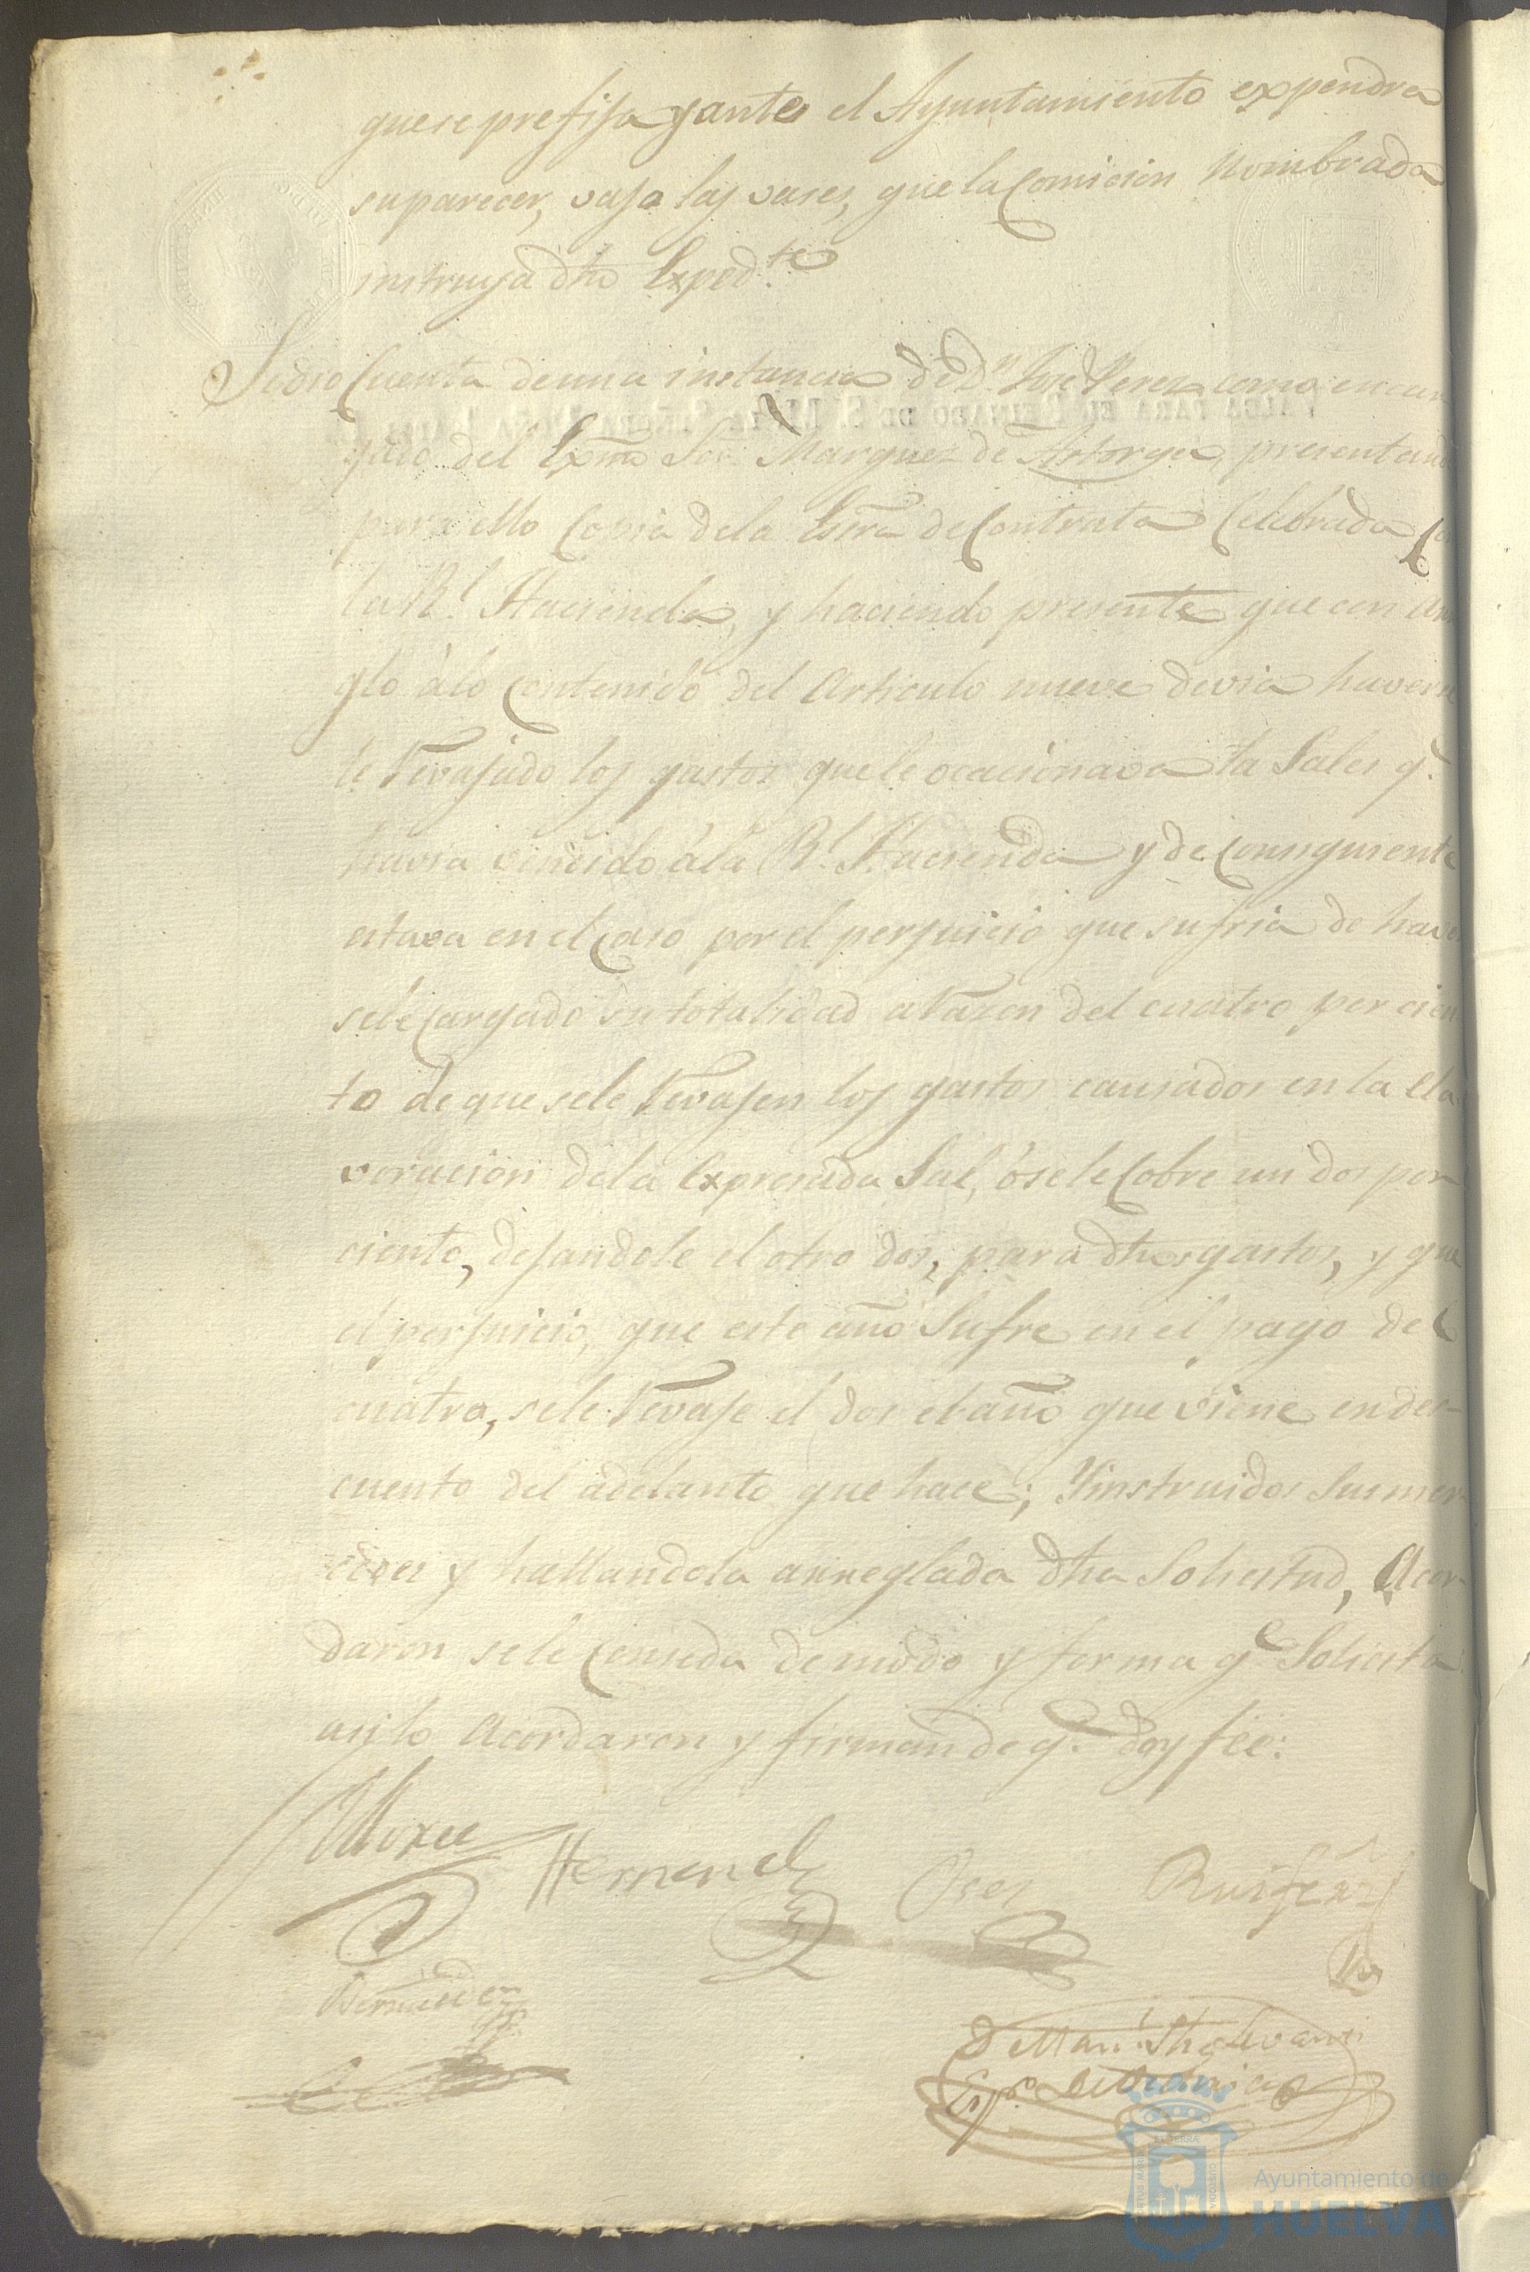 que se prefija y ante el Ayuntamiento expendra
su parecer, vajo las vases, que la Comicion Nombrada
instruya dho Exped.te
Se dio Cuenta de una instancia de D.n José Perez como encar
gado del Exmo Sor. Marquez de Astorga, presentand
para ello Copia de la Esra de Contrata Celebrada Con
la R.l Hacienda, y haciendo presente que con arre
glo à lo Contenido del Articulo nueve devia haverse
le revajado los gastos que le ocacionava la Sales q.e
havia vendido à la R.l Hacienda y de Conciguiente
estava en el Caso por el perjuicio que sufria de haver
sele Cargado su totalidad a razon del cuatro por cien
to de que se le revajen los gastos causados en la ela
voracion de la Expresada Sal, ó se le Cobre un dos por
ciento, dejandole el otro dos, para dhos gastos, y que
el perjuicio, que este año Sufre en el pago del
cuatro, se le revaje el dos el año que viene en des-
cuento del adelanto que hace; Y instruidos Sus mer
cedes y hallandola arreglada dha Solicitud, Acor-
daron se le Conseda de modo y forma q.e Solicita
asi lo Acordaron y firman de q.e doy fee:
Hernand.z
Ruifernz
Bermudez
D Man.l
Es.no
VALGA PARA EL REINADO DE S. M. LA SEÑORA DOÑA ISABEL II
Ayuntamiento de
HUELVA